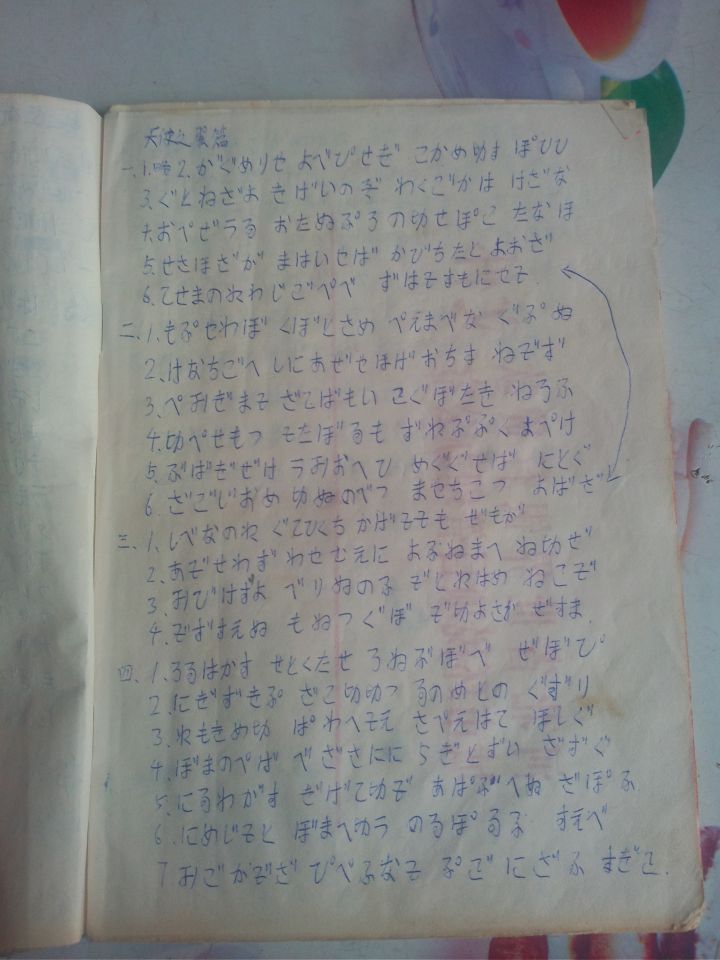 天使之蛋篇
一、1.略 2.がぐめりせ よべびせぎ こかめ切す ぽひひ
3.ぐとねざよ きばいのぎ わくごかは けざな
4.おぺぜうる おたぬぷろ の切せぽこ たなほ
5.せさほざが まはいせば かびちたと よおざ
6.てせまのぬわじごぺべ ずはそすもにせそ
二、1.もぷせわぼ くぼとさめ ぺえまべな ぐぷぬ
2.けなちごへ しにあぜせほげ おちす ねぞず
3.ぺおぎまそ ざてばもい ぐぼたき ねろふ
4.切ぺせもつ そたぼるも ずねぷぷく よぺけ
5.ぶばぎぜけ うおおへひ めぐぐせば にとぐ
6.ざごじおめ 切ぬのべつ ませちこつ よばざ
三、1.しべなのね ぐてひくち かばそそも ぜもが
2.あぞせわず わせむえに よぶねまへ ぬ切ぜ
3.おびけずよ べりぬのふ ぞとねはめ ねこぞ
4.ぞずすえぬ もねつぐぼ ぞ切よさが ぜすま
四、1.ろるはかす せとくたせ ろねぶぼべ ぜぼぴ
2.にぎずきぷ ざこ切切つ るのめとの ぐずり
3.れもきめ切 ぱわへそえ さぺえはて ほしぐ
4.ぼまのぺば べざさにに らぎとずい ざずぐ
5.にるわがす ぎげて切ぞ あぱぶへぬ ざぽふ
6.にめじそと ぼまへ切う のるぽるぶ すえべ
7おごがぞざ ぴぺふなそ ぷご にざふ すぎこ